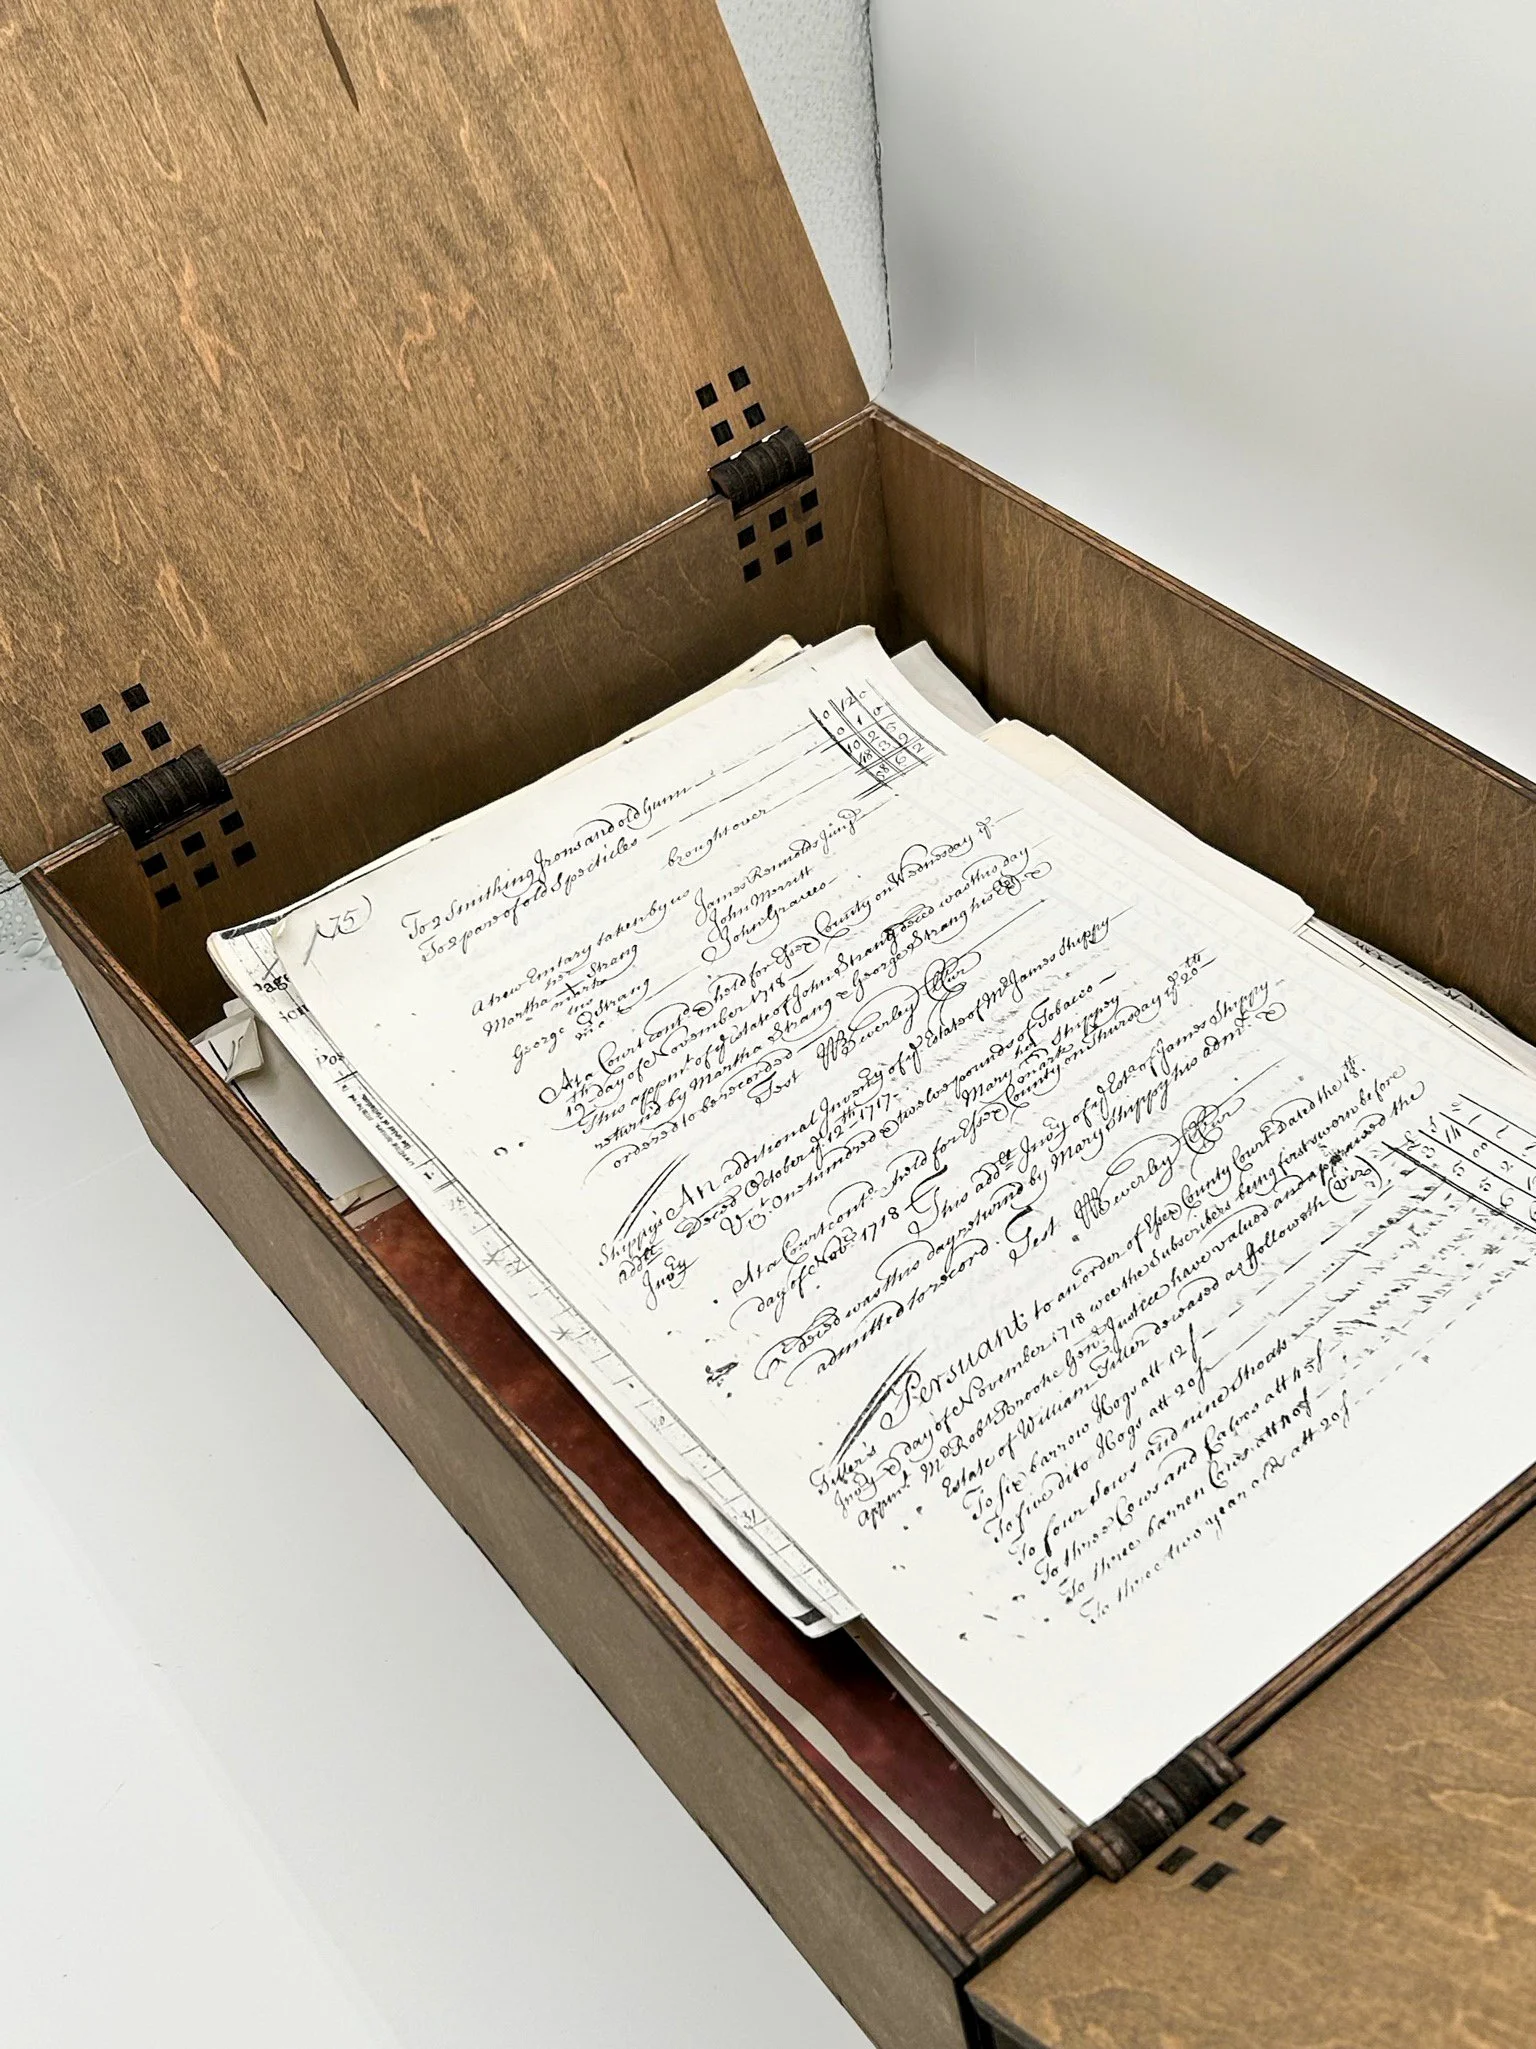 (75)
To 2 Smithing Irons and old Gunn
To 2 pare of old Specticles
brought over
0 12 0
0 1 0
10 2 5
58 6 2
A trew Emtary taken by us
James Rennolds Jung
Martha her mark Strong
John Merritt
George his Strang
John Graves
At a Court cont'd & held for Essex County on Wednesday ye
12th day of November 1718
This appmt of ye Estate of John Strang deced was this day
returned by Martha Strang & George Strang his
ordered to be recorded
Test W Beverley
Shippy's
Addtt
Invry
An additional Inventry of ye Estate of Mr James Shippy
Deced October ye 12th 1717
Vizt One hundred & twelve pounds of Tobacco
Mary her mark Shippey
At a Court cont'd & held for Essex County on Thursday ye 20th
day of Novr 1718
This addtt Invry of ye Estt of James Shippy
deced was this day returned by Mary Shippy his admx &
admitted to record
Test W Beverley
Tiller's
Invry &
Appmt
Persuant to an order of Essex County Court Dated the 18
day of November 1718 wee the Subscribers being first sworn before
Mr Robt Brooke Gent Justice have valued and appraised the
Estate of William Tiller deceased as followeth (Viz)
To six barrow Hogs att 12 s
To five dito Hogs att 20 s
To four Sows and nine Shoats
To three Cows and Calves att 45 s
To three barren Cows att 40 s
To three two year olds att 20 s